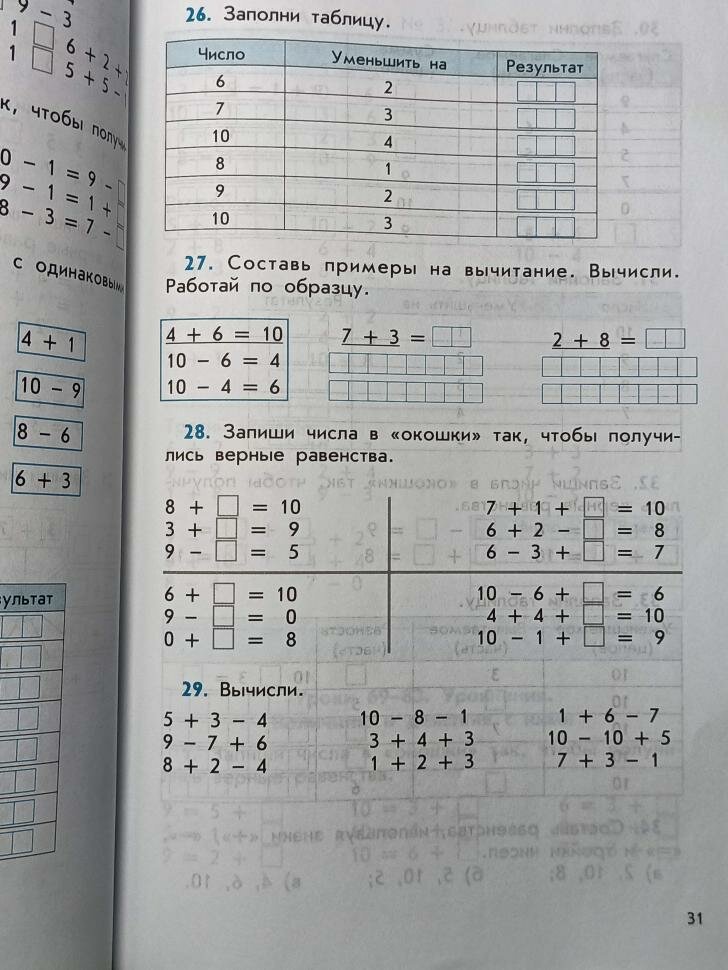 9 – 3
1 □ 6 + 2 + 2
1 □ 5 + 5 – 1
к, чтобы получи
0 – 1 = 9 – □
9 – 1 = 1 + □
8 – 3 = 7 – □
с одинаковыми
4 + 1
10 – 9
8 – 6
6 + 3
зультат
26. Заполни таблицу.
Число Уменьшить на Результат
6 2
7 3
10 4
8 1
9 2
10 3
27. Составь примеры на вычитание. Вычисли.
Работай по образцу.
4 + 6 = 10 7 + 3 = □□ 2 + 8 = □□
10 – 6 = 4
10 – 4 = 6
28. Запиши числа в «окошки» так, чтобы получи-
лись верные равенства.
8 + □ = 10 7 + 1 + □ = 10
3 + □ = 9 6 + 2 – □ = 8
9 – □ = 5 6 – 3 + □ = 7
6 + □ = 10 10 – 6 + □ = 6
9 – □ = 0 4 + 4 + □ = 10
0 + □ = 8 10 – 1 + □ = 9
29. Вычисли.
5 + 3 – 4 10 – 8 – 1 1 + 6 – 7
9 – 7 + 6 3 + 4 + 3 10 – 10 + 5
8 + 2 – 4 1 + 2 + 3 7 + 3 – 1
31